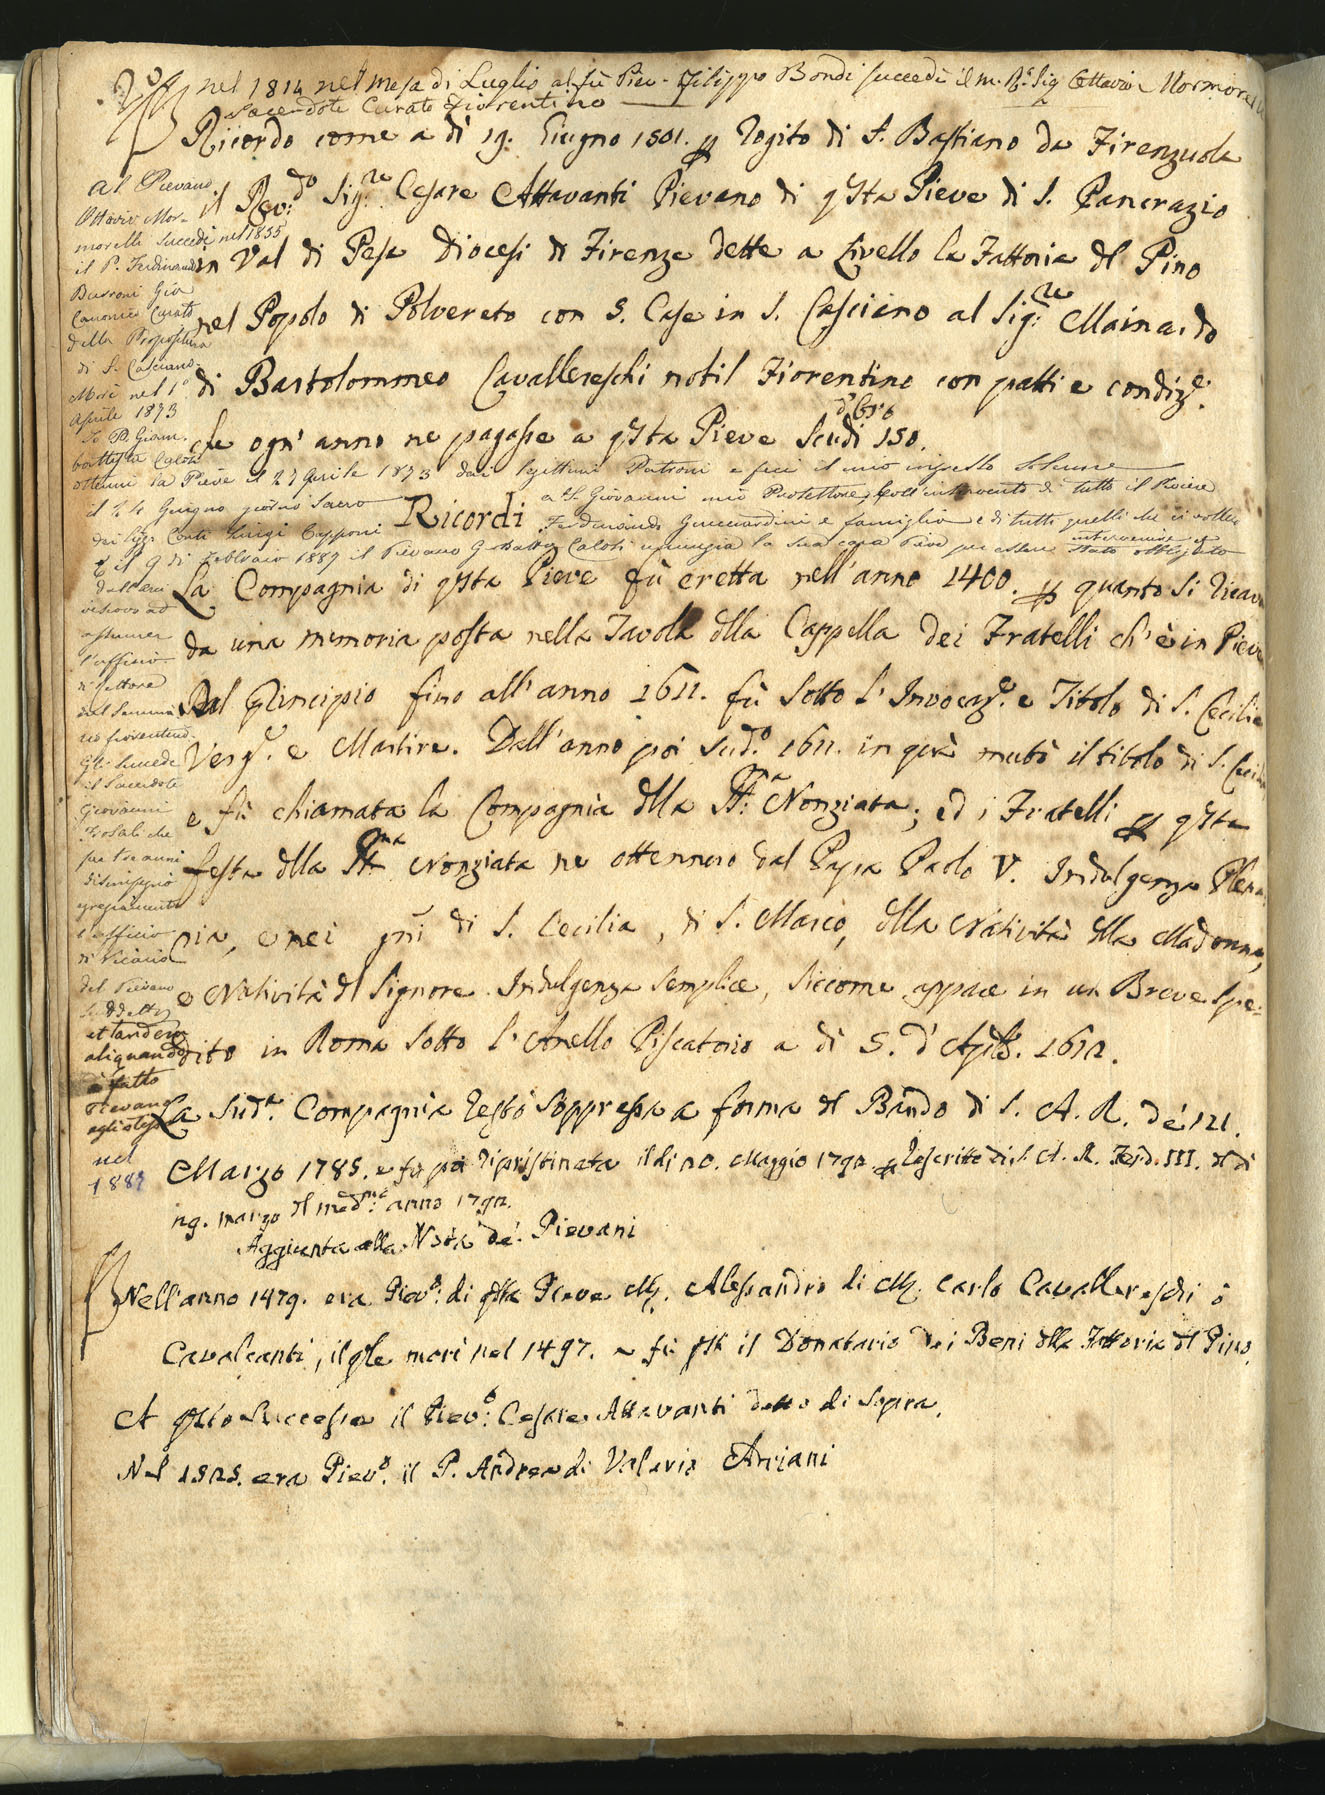 nel 1814 nel mese di Luglio al fù Piev. Filippo Bondi succedè il m. Rº Sig Ottavio Mormorelli
Sacerdote Curato Fiorentino
Ricordo come a dì 19. Giugno 1501. p rogito di S. Bastiano da Firenzuola
il Rev:do Sig:re Cesare Attavanti Pievano di qsta Pieve di S. Pancrazio
in Val di Pesa Diocesi di Firenze dette a Livello la Fattoria dl Pino
nel Popolo di Polvereto con 5. Case in S. Casciano al Sig:re Mainardo
di Bartolommeo Cavallereschi nobil Fiorentino con patti e condize.
che ogn' anno ne pagasse a qsta Pieve Scudi d'Oro 150.
al Pievano
Ottavio Mor-
morelli succedè nel 1835
il P. Ferdinando
Burroni Già
Canonico Curato
della Propositura
di S. Casciano
Morì nel 1º
Aprile 1873
Io P. Giam-
battista Caloti
ottenni la Pieve il 27 Aprile 1873 dai legittimi Patroni e feci il mio ingresso solenne
il 24 Giugno giorno Sacro a S. Giovanni mio Protettore, coll'intervento di tutto il Piviere
dei Sigg. Conti Luigi Capponi Ferdinando Guicciardini e famiglia e di tutti quelli che ci vollero
intervenire
E il 9 di Febbraio 1889 il Pievano G. Batta Caloti rinunzia la sua cara Pieve per essere stato obbligato
dall'Arci
vescovo ad
assumer
l'officio
di Rettore
del Semina
rio fiorentino.
Gli succede
il Sacerdote
Giovanni
che
per tre anni
disimpegnò
egregiamente
l'officio
di Vicario
del Pievano
Suddetto
et tandem
aliquando
è fatto
Pievano
nel
1889
Ricordi
La Compagnia di qsta Pieve fù eretta nell'anno 1400. p quanto si ricava
da una memoria posta nella Tavola dlla Cappella dei Fratelli ch'è in Pieve
Dal Principio fino all'anno 1611. fù sotto l'Invocaze. e Titolo di S. Cecilia
Verge. e Martire. Dall'anno poi sudº. 1611. in quà mutò il titolo di S. Cecilia
e fù chiamata la Compagnia dlla SS:ma Nonziata; ed i Fratelli p qsta
festa dlla SS:ma Nonziata ne ottennero dal Papa Paolo V. Indulgenza Plena-
ria, e nei gni di S. Cecilia, di S. Marco, dlla Natività dlla Madonna,
e Natività dl Signore Indulgenza semplice, siccome appare in un Breve spe-
dito in Roma sotto l'Anello Piscatorio a dì 5. d' Aple. 1612.
La Suda. Compagnia restò soppressa a forma dl Bando di S. A. R. de' 21.
Marzo 1785. e fu poi ripristinata il dì 20. Maggio 1792 p Rescritto di S. A. R. Ferd. III. dl dì
29. marzo dl med:mo anno 1792.
Aggiunta alla Nota de' Pievani
Nell'anno 1479. era Pievº: di qsta Pieve M. Alessandro di M. Carlo Cavallereschi ò
Cavalcanti, il qle morì nel 1497. e fù qsti il Donatario dei Beni dlla Fattoria dl Pino.
A qsto successe il Pievº: Cesare Attavanti detto di sopra.
Nel 1525. era Pievº. il P. Andrea di Valerio Arciani